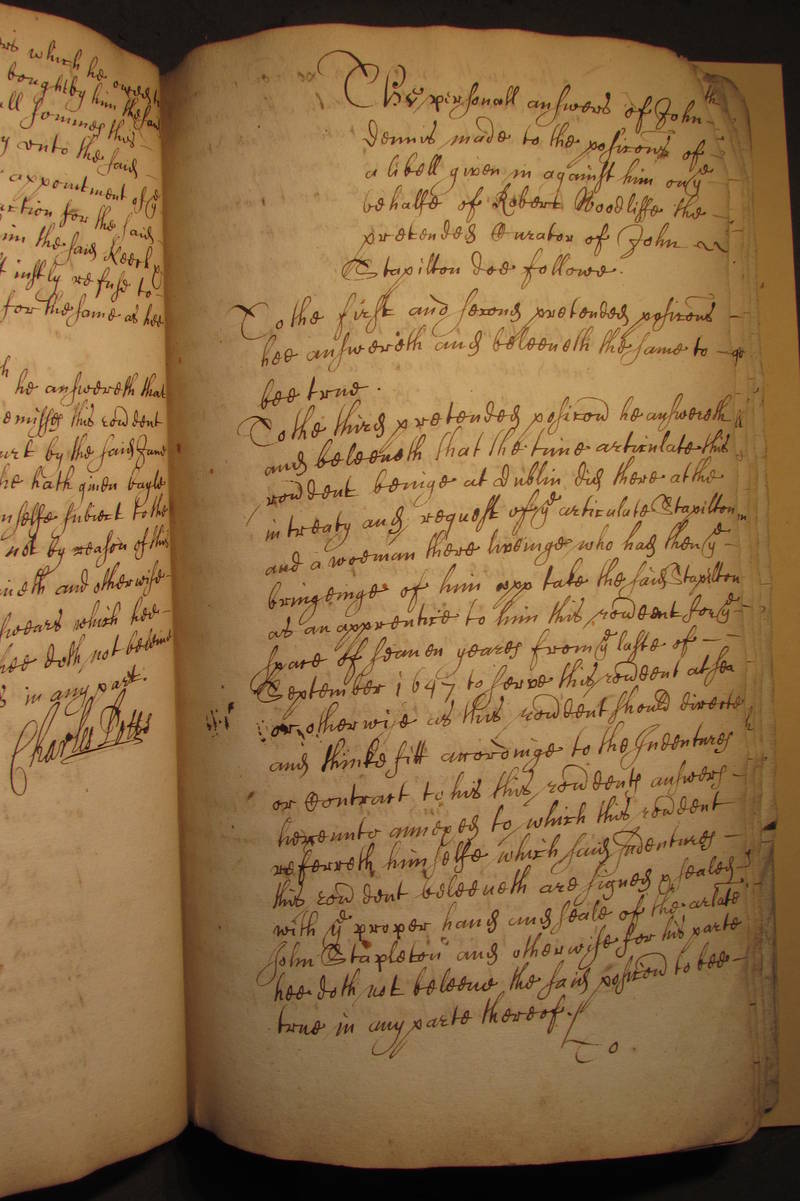 ers which he oweed to
bought by him the said
all sommes thus
y unto the said -
appointment of ye
action for the said
him the said Keerk
t instly refuse to -
for the same as hee
th
he answereth that
emisses this rondent
urt by the said Jane
he hath given bayle
mselfe subiect to the
not by reason of this
ineth and otherwise
swears which hee -
hee doth not beleeve
s in any part.
Charles Potts
The personall answers of John
Dennis made to the posicons of
a libell given in against him on ye
behalfe of Robert Woodliffe the -
pretended Curator of John
Stapilton doe followe.
To the first and second pretended posicons -
hee answereth and beleeveth the same to -
bee true.
To the third pretended posicon he answereth
and beleeveth that the time articulate this
rondent beinge at Dublin did there at the
intreaty and request of ye articulate Stapilton
and a woeman there liveinge who had then ye -
bringeinge of him upp take the said Stapilton
as an apprentice to him this rondent for ye -
space of seaven yeares from ye laste of - -
September 1647 to serve this rondent at sea
or otherwise as this rondent should directe
and thinke fitt accordinge to the Indentures
or Contract to his this rondents answers -
hereunto annexed to which this rondent
referreth himselfe which said Indentures -
this rondent beleeveth are signed & sealed
with ye proper hand and seale of the arlate
John Stapleton and otherwise for his parte
hee doth not beleeve the said posicon to bee -
true in any parte thereof./
To